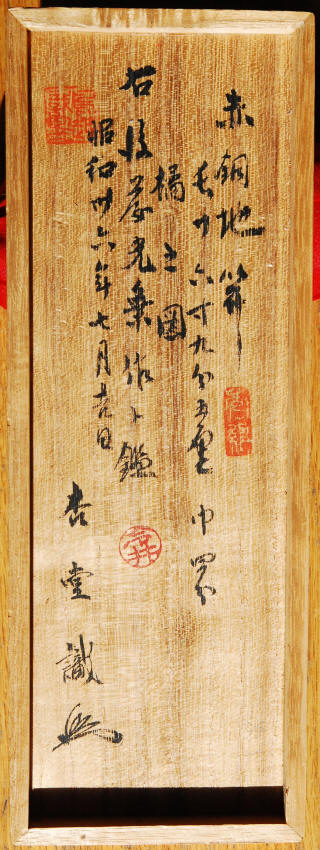 赤銅地笄
長サ六寸九分五厘 巾四分
橘之図
右後藤光乗作ト鑑
昭和卅六年七月吉日
杏堂識